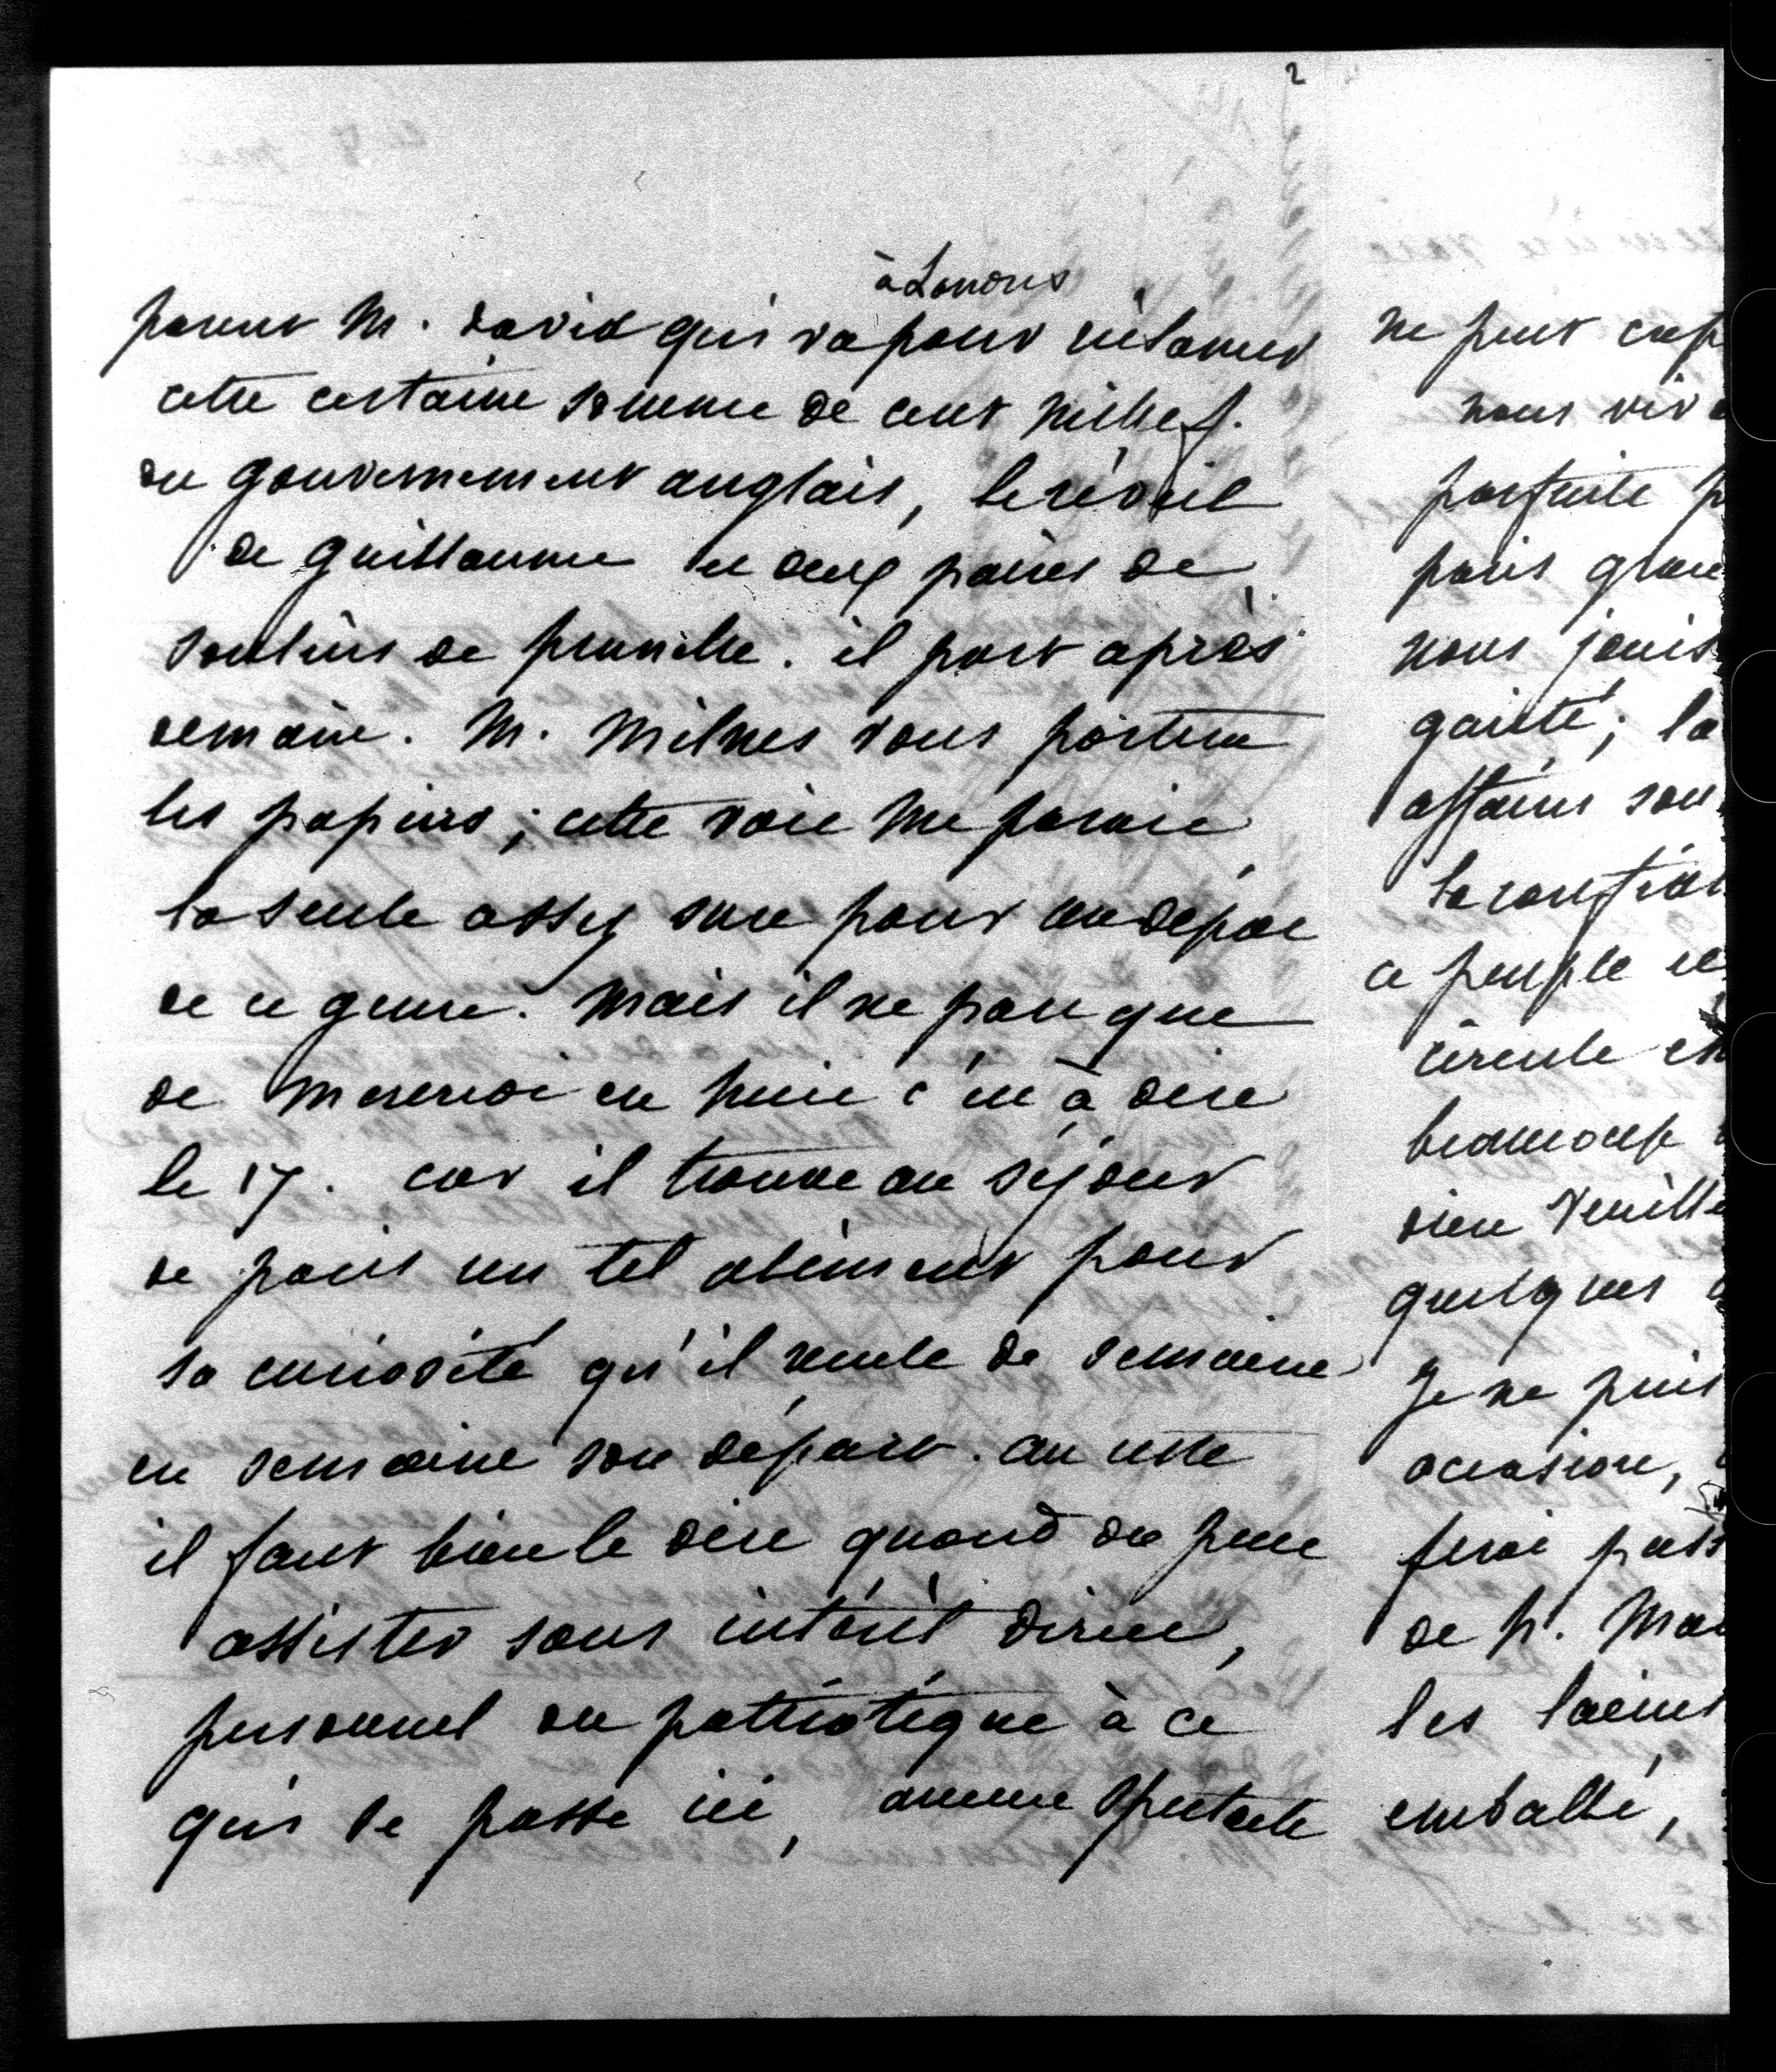 2
à Londres
parent M. david qui va pour réclamer
cette certaine somme de cent mille f.
du gouvernement anglais, le réveil
de guillaume et deux paires de
souliers de prunelle. il part après
demain. M. Milnes vous portera
les papiers ; cette voie me parait
la seule assez sure pour un dépot
de ce genre. Mais il ne part que
de Mercredi en huit c'est à dire
le 17. car il trouve au séjour
de paris un tel aliment pour
sa curiosité qu'il recule de semaine
en semaine son départ. au reste
il faut bien le dire quand on peut
assister sans intérêt direct,
personnel ou patriotique à ce
qui se passe ici, aucun spectacle
ne peut
nous viv
parfaite p
paris
nous jouis
gaieté ; la
affaires son
la confian
ce peuple et
circule en
beaucoup
dieu veuille
quelques
Je ne puis
occasion,
ferai pass
de p. Ma
les laines
emballé,